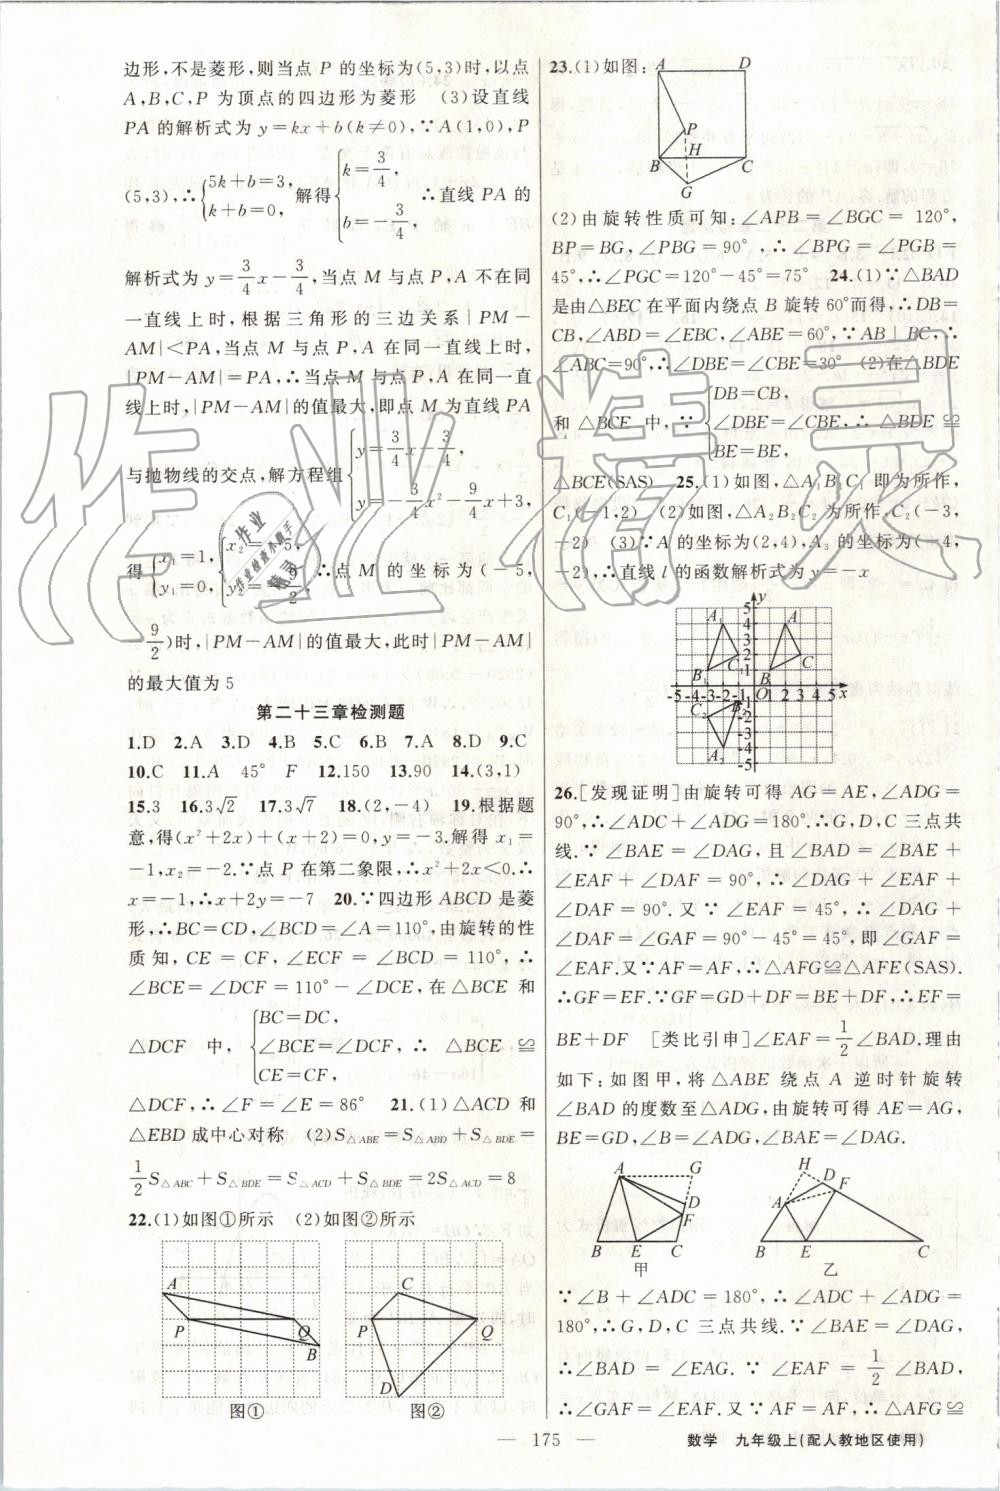 边形,不是菱形,则当点 P 的坐标为(5,3)时,以点
A,B,C,P 为顶点的四边形为菱形 (3)设直线
PA 的解析式为 y=kx+b(k≠0),∵A(1,0),P
(5,3),∴{5k+b=3, k+b=0, 解得{k=3/4, b=-3/4, ∴直线 PA 的
解析式为 y=3/4x-3/4,当点 M 与点 P,A 不在同
一直线上时,根据三角形的三边关系|PM-
AM|<PA,当点 M 与点 P,A 在同一直线上时,
|PM-AM|=PA,∴当点 M 与点 P,A 在同一直
线上时,|PM-AM|的值最大,即点 M 为直线 PA
与抛物线的交点,解方程组{y=3/4x-3/4, y=-3/4x²-9/4x+3,
得{x₁=1, y₁=0, {x₂=-5, y₂=-9/2, ∴点 M 的坐标为(-5,
-9/2)时,|PM-AM|的值最大,此时|PM-AM|
的最大值为 5
第二十三章检测题
1.D 2.A 3.D 4.B 5.C 6.B 7.A 8.D 9.C
10.C 11.A 45° F 12.150 13.90 14.(3,1)
15.3 16.3√2 17.3√7 18.(2,-4) 19.根据题
意,得(x²+2x)+(x+2)=0,y=-3.解得 x₁=
-1,x₂=-2.∵点 P 在第二象限,∴x²+2x<0.∴
x=-1,∴x+2y=-7 20.∵四边形 ABCD 是菱
形,∴BC=CD,∠BCD=∠A=110°,由旋转的性
质知,CE=CF,∠ECF=∠BCD=110°,∴
∠BCE=∠DCF=110°-∠DCE,在△BCE 和
△DCF 中,{BC=DC, ∠BCE=∠DCF, CE=CF, ∴△BCE≌
△DCF,∴∠F=∠E=86° 21.(1)△ACD 和
△EBD 成中心对称 (2)S△ABE=S△ABD+S△BDE=
1/2S△ABC+S△BDE=S△ACD+S△BDE=2S△ACD=8
22.(1)如图①所示 (2)如图②所示
A P Q B
图①
C P Q D
图②
23.(1)如图:
A D
P
B H C
G
(2)由旋转性质可知:∠APB=∠BGC=120°,
BP=BG,∠PBG=90°,∴∠BPG=∠PGB=
45°,∴∠PGC=120°-45°=75° 24.(1)∵△BAD
是由△BEC 在平面内绕点 B 旋转 60°而得,∴DB=
CB,∠ABD=∠EBC,∠ABE=60°,∵AB⊥BC,∴
∠ABC=90°,∴∠DBE=∠CBE=30° (2)在△BDE
和△BCE 中,∵{DB=CB, ∠DBE=∠CBE, BE=BE, ∴△BDE≌
△BCE(SAS) 25.(1)如图,△A₁B₁C₁ 即为所作,
C₁(-1,2) (2)如图,△A₂B₂C₂ 为所作,C₂(-3,
-2) (3)∵A 的坐标为(2,4),A₃ 的坐标为(-4,
-2),∴直线 l 的函数解析式为 y=-x
y
5
4
3
2
1
-5 -4 -3 -2 -1 O 1 2 3 4 5 x
A₁ A C₁ C B₁ B
B₂ C₂ A₂
-1
-2
-3
-4
-5
26.[发现证明]由旋转可得 AG=AE,∠ADG=
90°,∴∠ADC+∠ADG=180°.∴G,D,C 三点共
线.∵∠BAE=∠DAG,且∠BAD=∠BAE+
∠EAF+∠DAF=90°,∴∠DAG+∠EAF+
∠DAF=90°.又∵∠EAF=45°,∴∠DAG+
∠DAF=∠GAF=90°-45°=45°,即∠GAF=
∠EAF.又∵AF=AF,∴△AFG≌△AFE(SAS).
∴GF=EF.∵GF=GD+DF=BE+DF,∴EF=
BE+DF [类比引申]∠EAF=1/2∠BAD.理由
如下:如图甲,将△ABE 绕点 A 逆时针旋转
∠BAD 的度数至△ADG,由旋转可得 AE=AG,
BE=GD,∠B=∠ADG,∠BAE=∠DAG.
A G D F B E C
甲
H D F A B E C
乙
∵∠B+∠ADC=180°,∴∠ADC+∠ADG=
180°,∴G,D,C 三点共线.∵∠BAE=∠DAG,
∴∠BAD=∠EAG.∵∠EAF=1/2∠BAD,
∴∠GAF=∠EAF.又∵AF=AF,∴△AFG≌
— 175 —
数学 九年级上(配人教地区使用)
作业精灵
作业
作业检查小助手
精灵